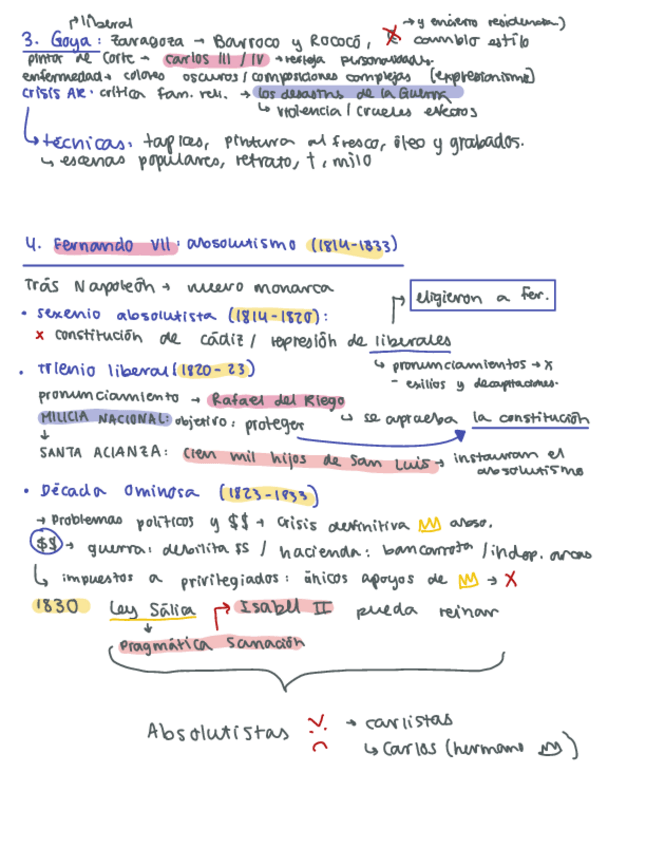 liberal
→ y encierro residencia)
3. Goya: Zaragoza → Barroco y Rococó, cambio estilo
pintor de corte → Carlos III / IV → refleja personalidades.
enfermedad → colores oscuros / composiciones complejas (expresionismo)
CRISIS AR. crítica fam. rel. → los desastres de la Guerra
↳ violencia / crueles efectos
↳ técnicas: tapices, pintura al fresco, óleo y grabados.
↳ escenas populares, retrato, t, milo
4. Fernando VII: absolutismo (1814-1833)
Trás Napoleón → nuevo monarca
eligieron a Fer.
• sexenio absolutista (1814-1820):
x constitución de cádiz / represión de liberales
↳ pronunciamientos → x
- exilios y decapitaciones.
• Trienio liberal (1820-23)
pronunciamiento → Rafael del Riego
MILICIA NACIONAL: objetivo: proteger ↳ se aprueba la constitución
↓
SANTA ALIANZA: cien mil hijos de San Luis → instauran el absolutismo
• Década Ominosa (1823-1833)
→ Problemas políticos y $$ → crisis definitiva abso.
$$ → guerra: debilita $$ / hacienda: bancarrota / indep. arcas
↳ impuestos a privilegiados: únicos apoyos de → X
1830 Ley Sálica → Isabel II pueda reinar
↓
Pragmática Sanación
Absolutistas → carlistas
↳ Carlos (hermano )